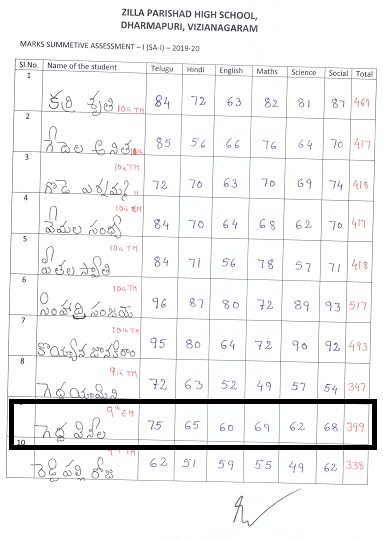 ZILLA PARISHAD HIGH SCHOOL,
DHARMAPURI, VIZIANAGARAM
MARKS SUMMETIVE ASSESSMENT – I (SA-I) – 2019-20
Sl.No. Name of the student Telugu Hindi English Maths Science Social Total
1 కర్రి శృతి 10th TM 84 72 63 82 81 87 469
2 గేదెల అనిత 85 56 66 76 64 70 417
3 గొడె 10th TM 72 70 63 70 69 74 418
4 వేమల సంధ్య 10th EM 84 70 64 68 62 70 417
5 పీతల స్వాతి 10th TM 84 71 56 78 57 71 418
6 సింహాద్రి సంజయ్ 10th TM 96 87 80 72 89 93 517
7 కొయ్యాన జానకిరాం 10th TM 95 80 64 72 90 92 493
8 గెద్ద యామిని 9th TM 72 63 52 49 57 54 347
గెద్ద వినీల 9th EM 75 65 60 69 62 68 399
10 రెడ్డిపల్లి రోజ 62 51 59 55 49 62 338